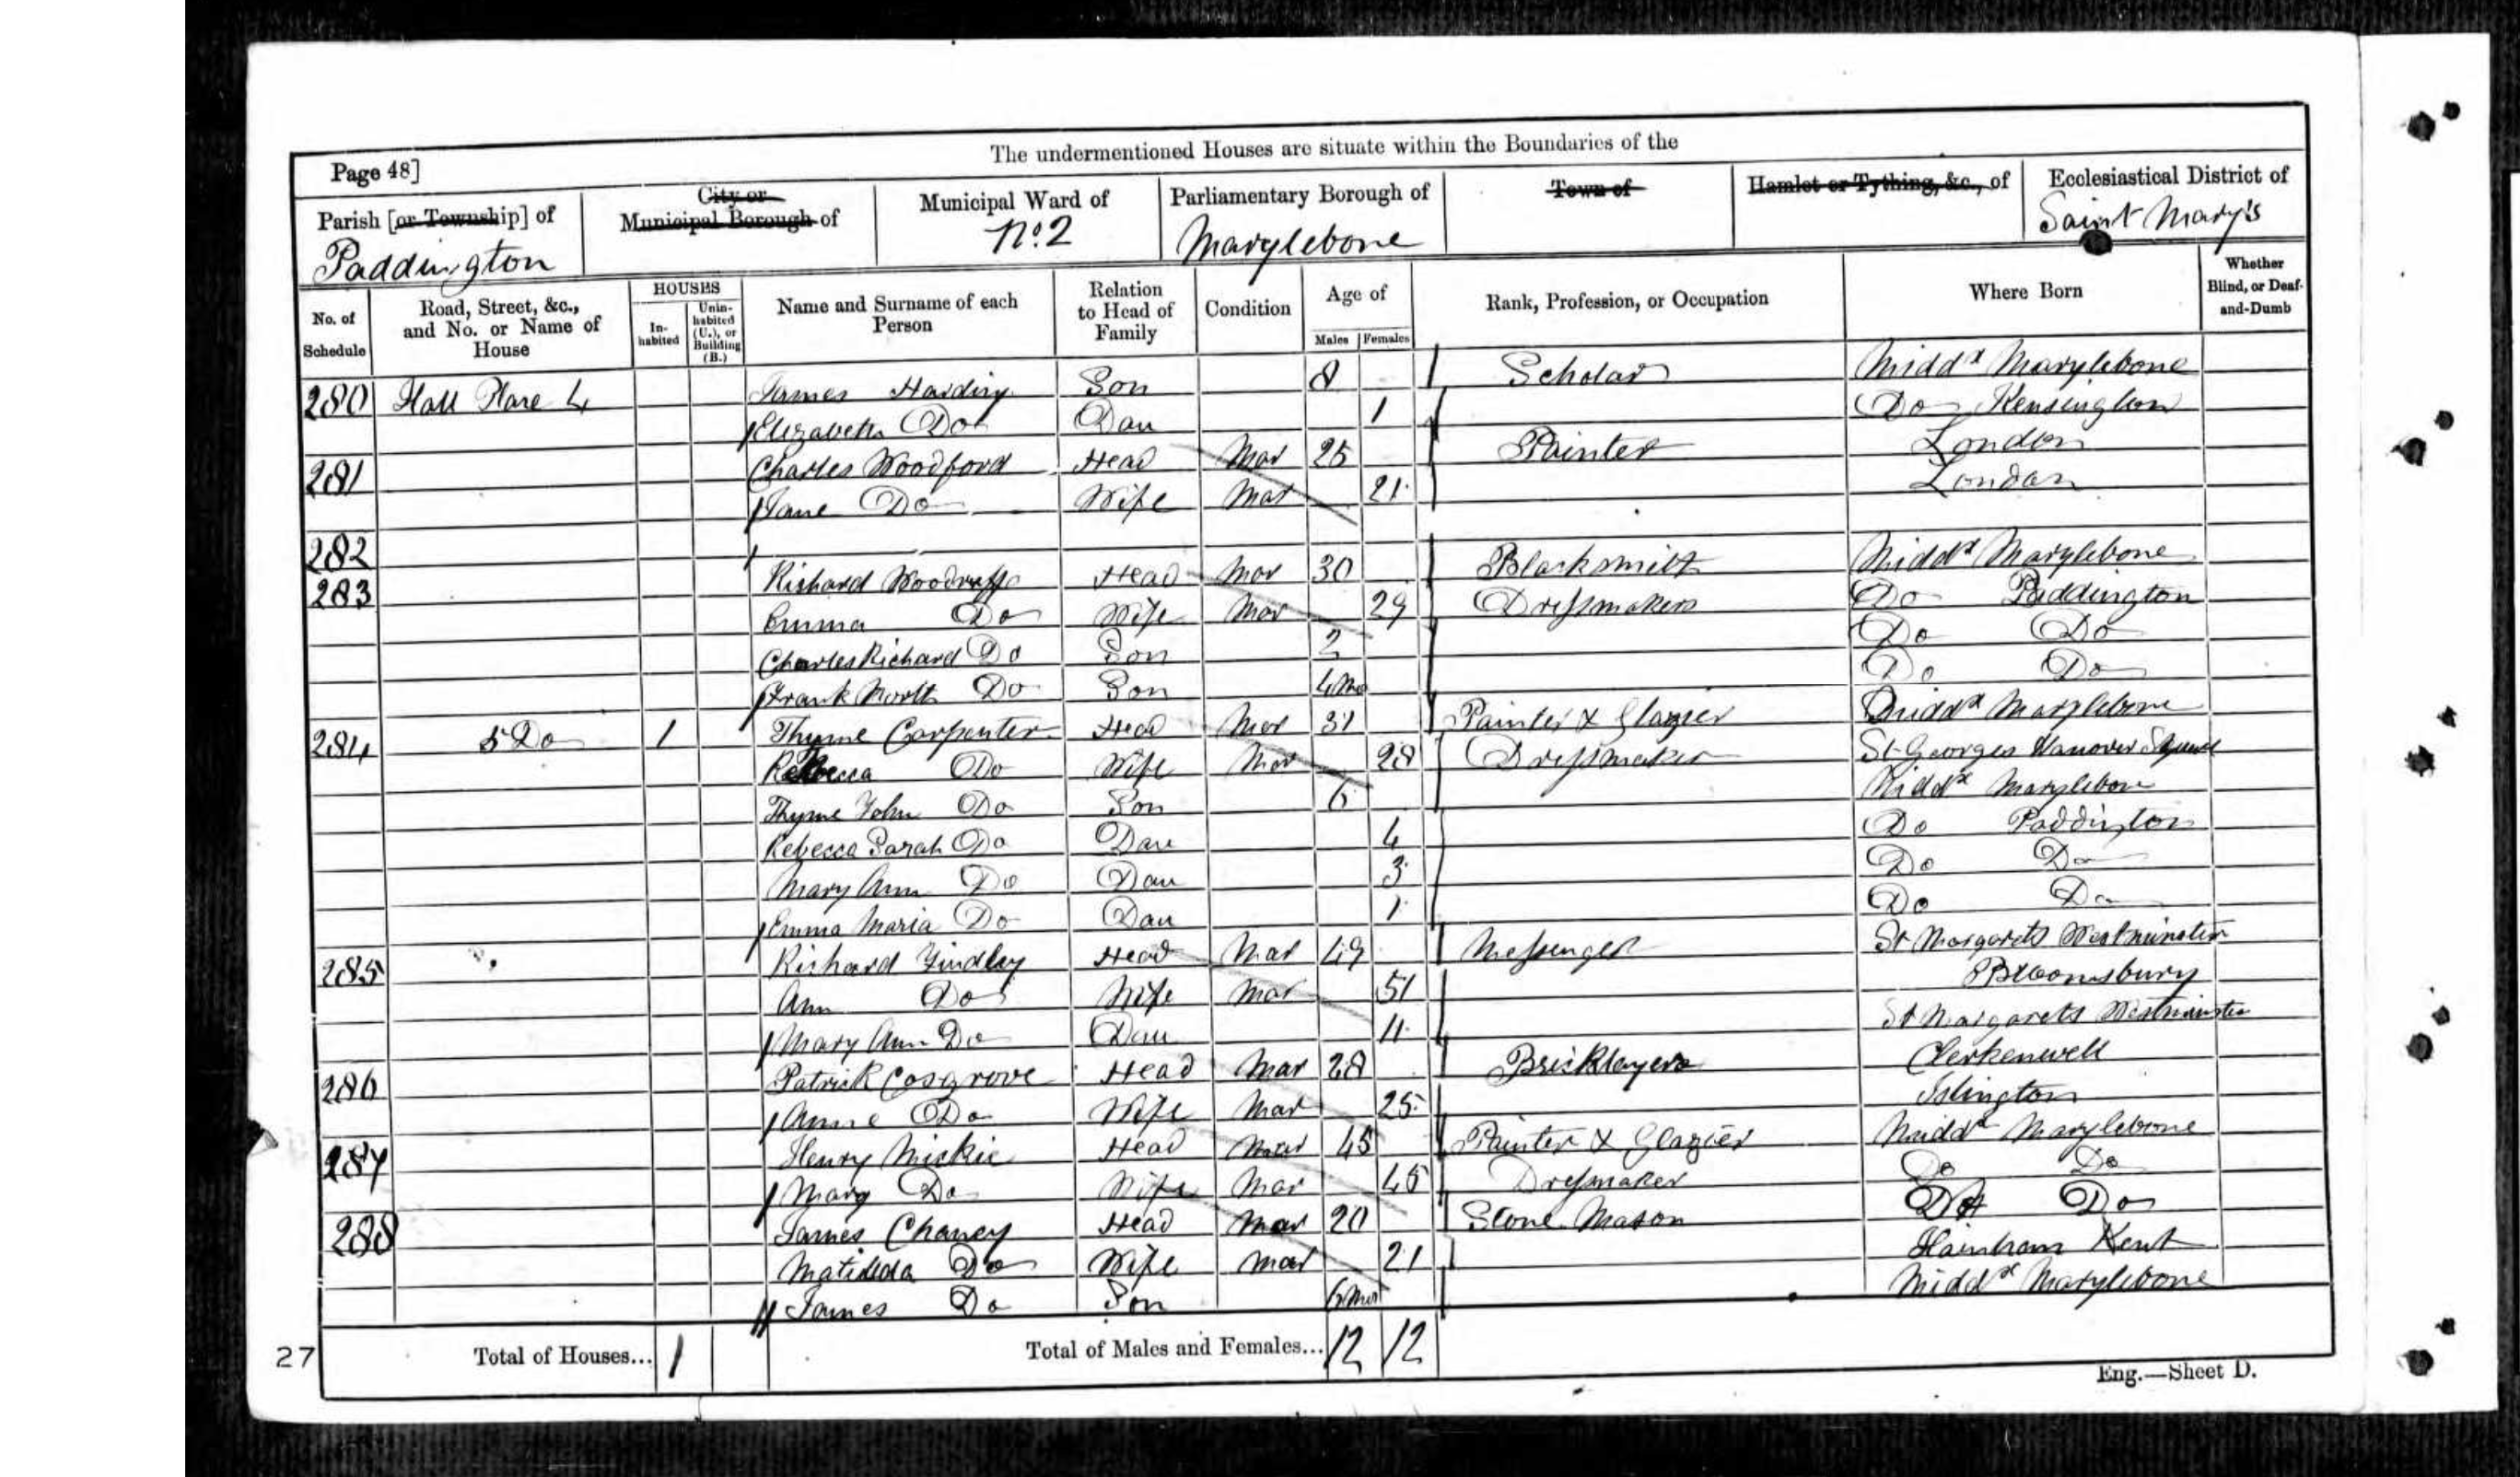 The undermentioned Houses are situate within the Boundaries of the
Page 48]
Parish [or Township] of Paddington
City or Municipal Borough of
Municipal Ward of No. 2
Parliamentary Borough of Marylebone
Town of
Hamlet or Tything, &c., of
Ecclesiastical District of Saint Mary's
No. of Schedule
Road, Street, &c., and No. or Name of House
HOUSES
Inhabited
Uninhabited (U.), or Building (B.)
Name and Surname of each Person
Relation to Head of Family
Condition
Age of
Males
Females
Rank, Profession, or Occupation
Where Born
Whether Blind, or Deaf-and-Dumb
280 Hall Place 4 James Harding Son 8 Scholar Middx Marylebone
Elizabeth Do Dau 1 Do Kensington
281 Charles Woodford Head Mar 25 Painter London
Jane Do Wife Mar 21 London
282
283 Richard Woodruffe Head Mar 30 Blacksmith Middx Marylebone
Emma Do Wife Mar 29 Dressmaker Do Paddington
Charles Richard Do Son 2 Do Do
Frank North Do Son 4 Mo Do Do
284 5 Do 1 Thyme Carpenter Head Mar 31 Painter & Glazier Middx Marylebone
Rebecca Do Wife Mar 28 Dressmaker St Georges Hanover Square
Thyme John Do Son 6 Middx Marylebone
Rebecca Sarah Do Dau 4 Do Paddington
Mary Ann Do Dau 3 Do Do
Emma Maria Do Dau 1 Do Do
285 Richard Findley Head Mar 49 Messenger St Margarets Westminster
Ann Do Wife Mar 51 Bloomsbury
Mary Ann Do Dau 11 St Margarets Westminster
286 Patrick Cosgrove Head Mar 28 Bricklayer Clerkenwell
Anne Do Wife Mar 25 Islington
287 Henry Mickie Head Mar 45 Painter & Glazier Middx Marylebone
Mary Do Wife Mar 45 Dressmaker Do Do
288 James Chaney Head Mar 20 Stone Mason Do Do
Matilda Do Wife Mar 21 Kent
James Do Son 6 Mo Middx Marylebone
27
Total of Houses... 1
Total of Males and Females... 12 12
Eng.—Sheet D.